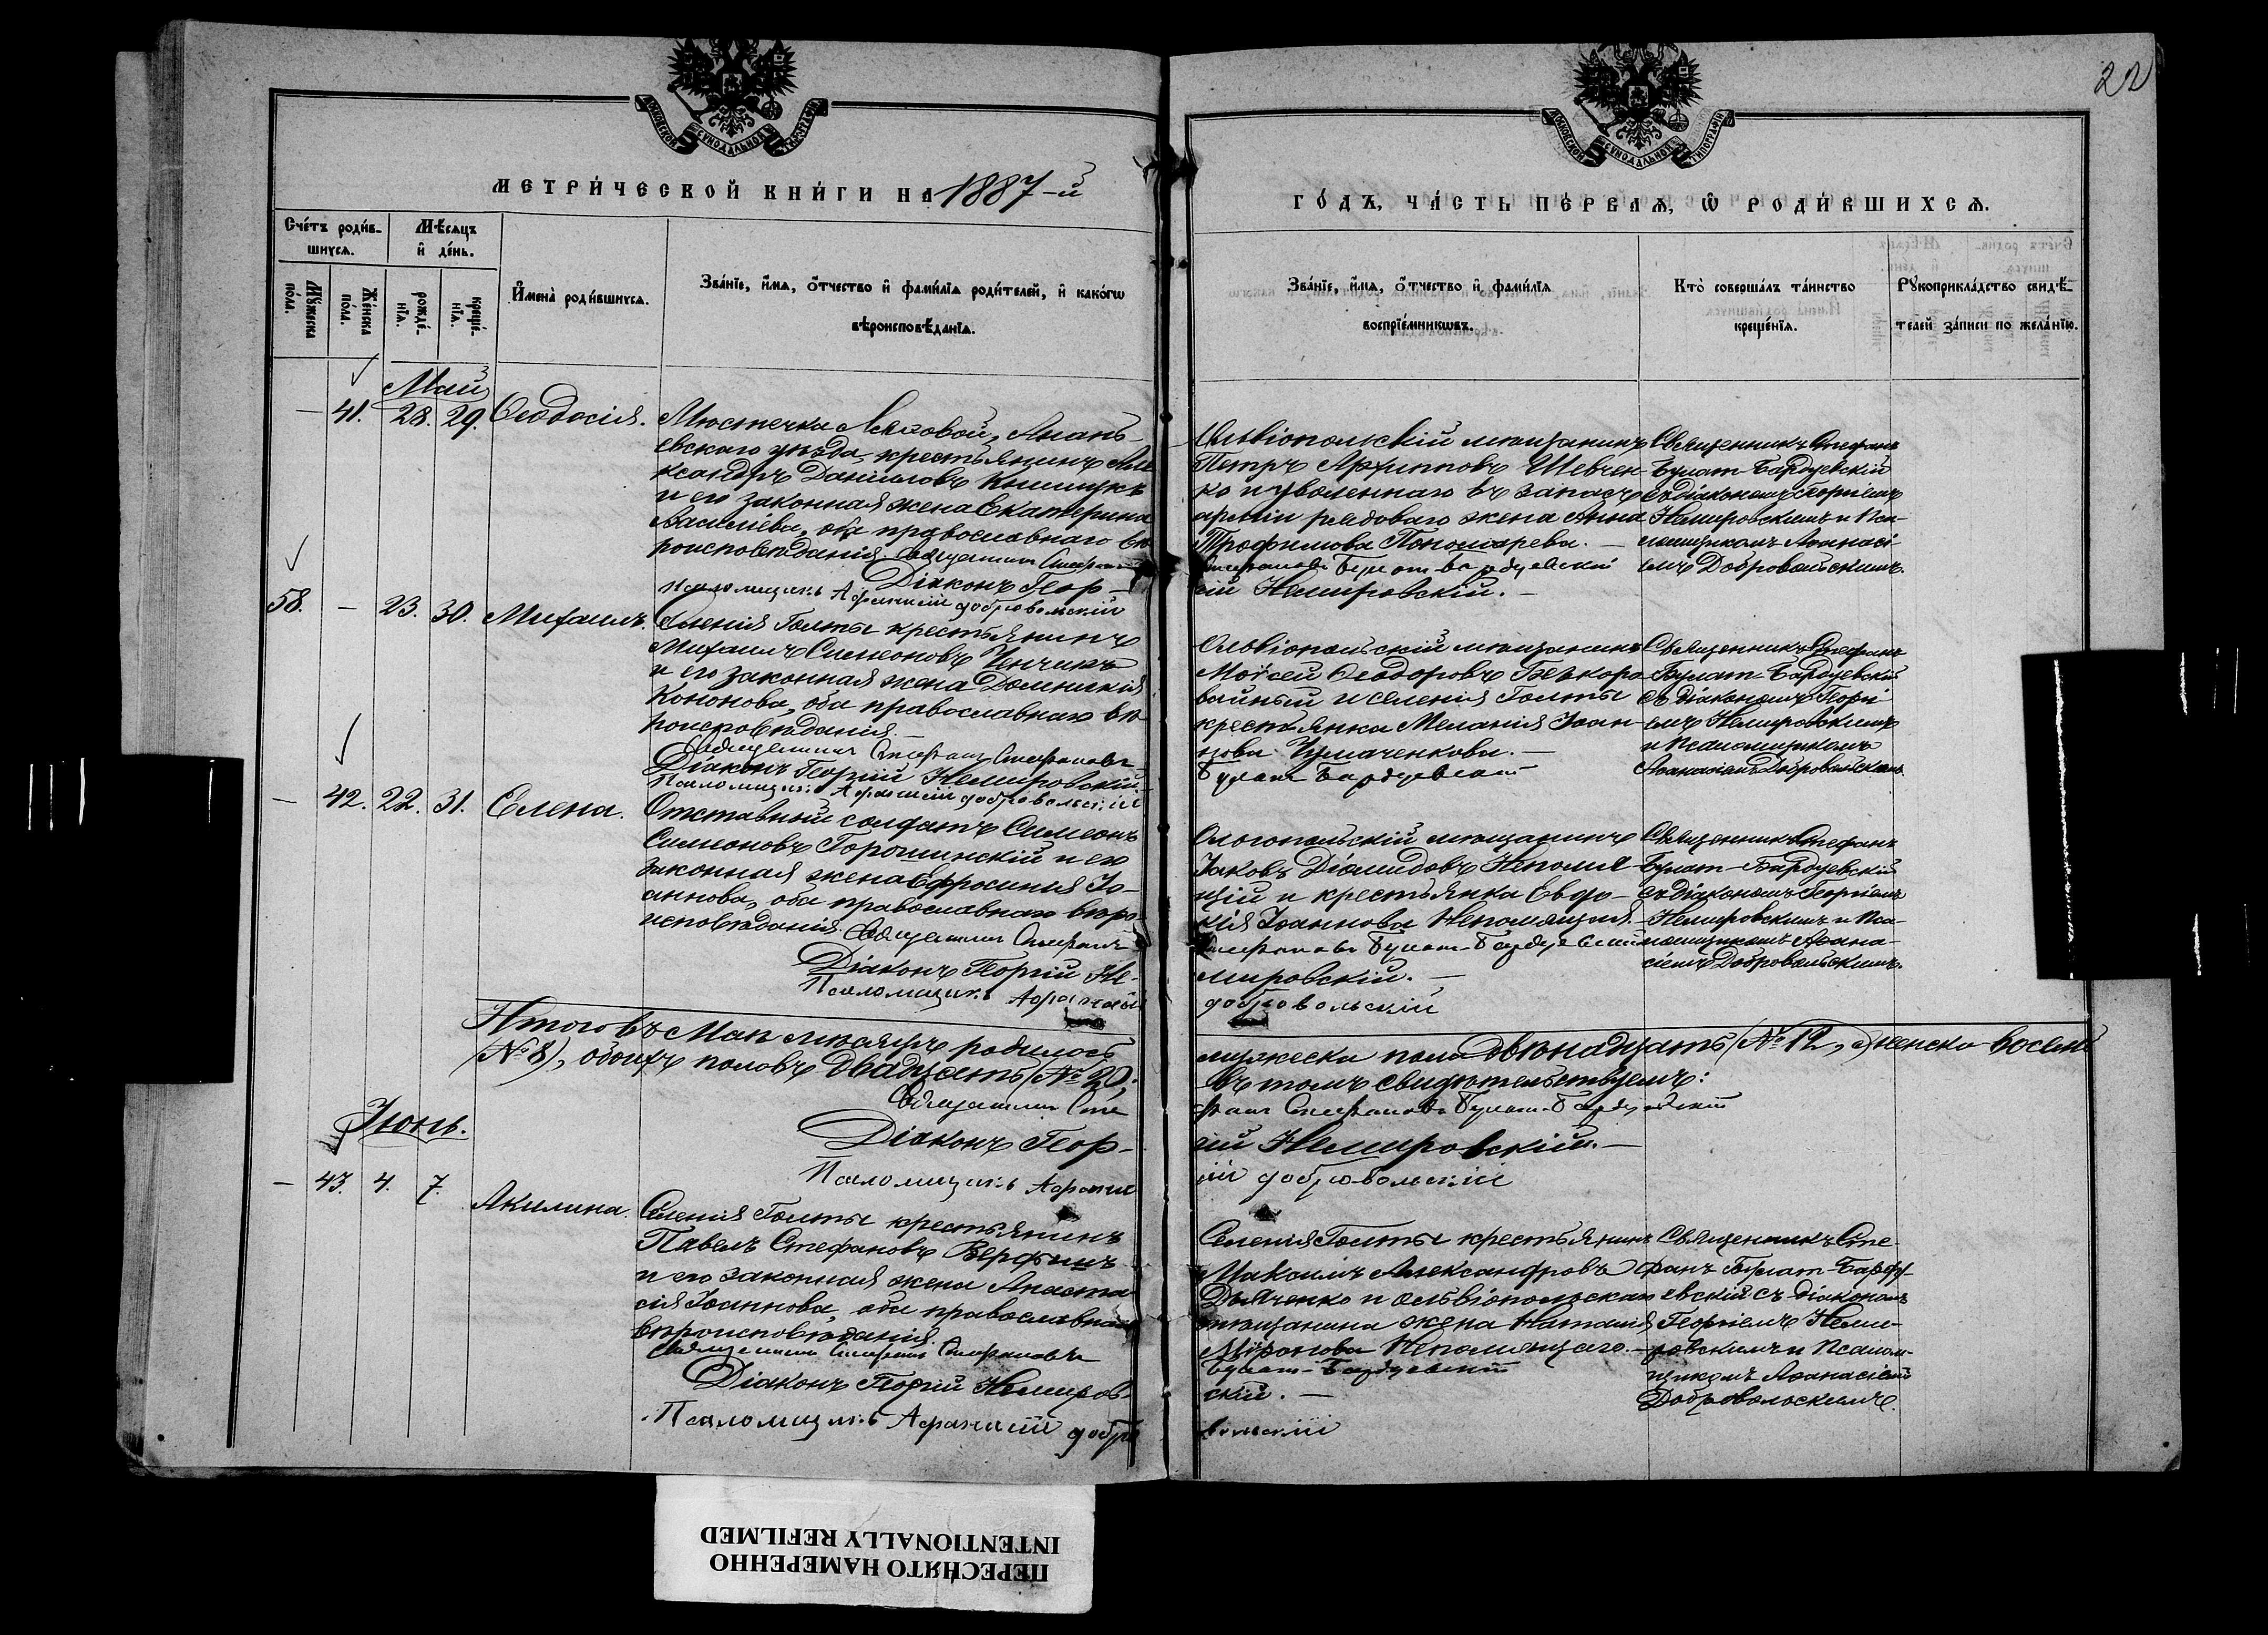 22
МОСКОВСКОЙ СѴНОДАЛЬНОЙ ТИПОГРАФІИ
МОСКОВСКОЙ СѴНОДАЛЬНОЙ ТИПОГРАФІИ
МЕТРИ́ЧЕСКОЙ КНИ́ГИ НА 1887-й
ГО́ДЪ, ЧА́СТЬ ПЕ́РВАѦ, Ѡ҆ РОДИ́ВШИХСѦ.
Сче́тъ роди́в-
шихсѧ.
Мꙋ́жеска
по́ла.
Же́нска
по́ла.
Мѣ́сѧцъ
и҆ де́нь.
рожде́-
нїѧ.
креще́-
нїѧ.
И҆мена̀ роди́вшихсѧ.
Зва́нїе, и҆́мѧ, ѻ҆́тчество и҆ фами́лїѧ роди́телей, и҆ како́гѡ
вѣроисповѣ́данїѧ.
Зва́нїе, и҆́мѧ, ѻ҆́тчество и҆ фами́лїѧ
воспрїе́мникѡвъ.
Кто̀ соверша́лъ та́инство
креще́нїѧ.
Рꙋкоприкла́дство свидѣ́-
телей за́писи по жела́нїю.
Май
— 41. 28. 29. Ѳеодосія.
Мѣстечка Лысовой, Анань-
евскаго уѣзда, крестьянинъ Але-
ксандръ Даніиловъ
и его законная жена Екатерина
Василіева, оба православнаго вѣ-
роисповѣданія. Священникъ Стефанъ
Діаконъ Геор-
Псаломщикъ Афанасій Добровольскій
Ольвіопольскій мѣщанинъ
Петръ Архипповъ Шевчен-
ко и уволеннаго въ запасъ
арміи рядоваго жена Анна
Трофимова Пономарева. —
Стефановъ Булат-Бардуевскій
гій Немировскій. —
Священникъ Стефанъ
Булат-Бардуевскій
съ діакономъ Георгіемъ
Немировскимъ и Пса-
ломщикомъ Аѳанасі-
емъ Добровольскимъ.
58. — 23. 30. Михаилъ.
Селенія Голты крестьянинъ
Михаилъ Симеоновъ Ченчикъ
и его законная жена Домникія
Кононова, оба православнаго вѣ-
роисповѣданія. —
Священникъ Стефанъ Стефановъ
Діаконъ Георгій Немировскій.
Псаломщикъ Афанасій Добровольскій
Ольвіопольскій мѣщанинъ
Моѵсей Ѳеодоровъ Безкоро-
вайный и селенія Голты
крестьянка Меланія Іоан-
нова Чумаченкова. —
Булат Бардуевскій
Священникъ Стефанъ
Булат-Бардуевскій
съ діакономъ Георгі-
емъ Немировскимъ
и Псаломщикомъ
Аѳанасіемъ Добровольскимъ
— 42. 22. 31. Елена.
Отставный солдатъ Симеонъ
Симеоновъ Горошинскій и его
законная жена Ефросинія Іо-
аннова, оба православнаго вѣро-
исповѣданія. Священникъ Стефанъ
Діаконъ Георгій Не-
Псаломщикъ Афанасій
Ольгопольскій мѣщанинъ
Іаковъ Діомидовъ Непомня-
щій и крестьянка Евдо-
кія Іоаннова Непомнящая. —
Стефановъ Булат-Бардуевскій
мировскій. —
Добровольскій
Священникъ Стефанъ
Булат-Бардуевскій
съ діакономъ Георгіемъ
Немировскимъ и Пса-
ломщикомъ Аѳана-
сіемъ Добровольскимъ.
Итого въ Маѣ мѣсяцѣ родилось мужеска пола двѣнадцать (№ 12), женска восемь
(№ 8), обоихъ половъ двадцать (№ 20). въ томъ свидѣтельствуемъ:
Священникъ Сте фанъ Стефановъ Булат-Бардуевскій
Діаконъ Геор- гій Немировскій. —
Псаломщикъ Афанас ій Добровольскій
Іюнь.
— 43. 4. 7. Акилина.
Селенія Голты крестьянинъ
Павелъ Стефановъ
и его законная жена Анаста-
сія Іоаннова, оба православнаго
вѣроисповѣданія.
Священникъ Стефанъ Стефановъ
Діаконъ Георгій Немиров-
Псаломщикъ Афанасій Добро
Селенія Голты крестьянинъ
Максимъ Александровъ
Дьяченко и ольвіопольскаго
мѣщанина жена Наталія
Миронова Непомнящаго. —
Булат-Бардуевскій
скій. —
вольскій
Священникъ Сте-
фанъ Булат-Барду-
евскій съ діакономъ
Георгіемъ Неми-
ровскимъ и Псалом-
щикомъ Аѳанасіемъ
Добровольскимъ.
ПЕРЕСНЯТО НАМЕРЕННО
INTENTIONALLY REFILMED